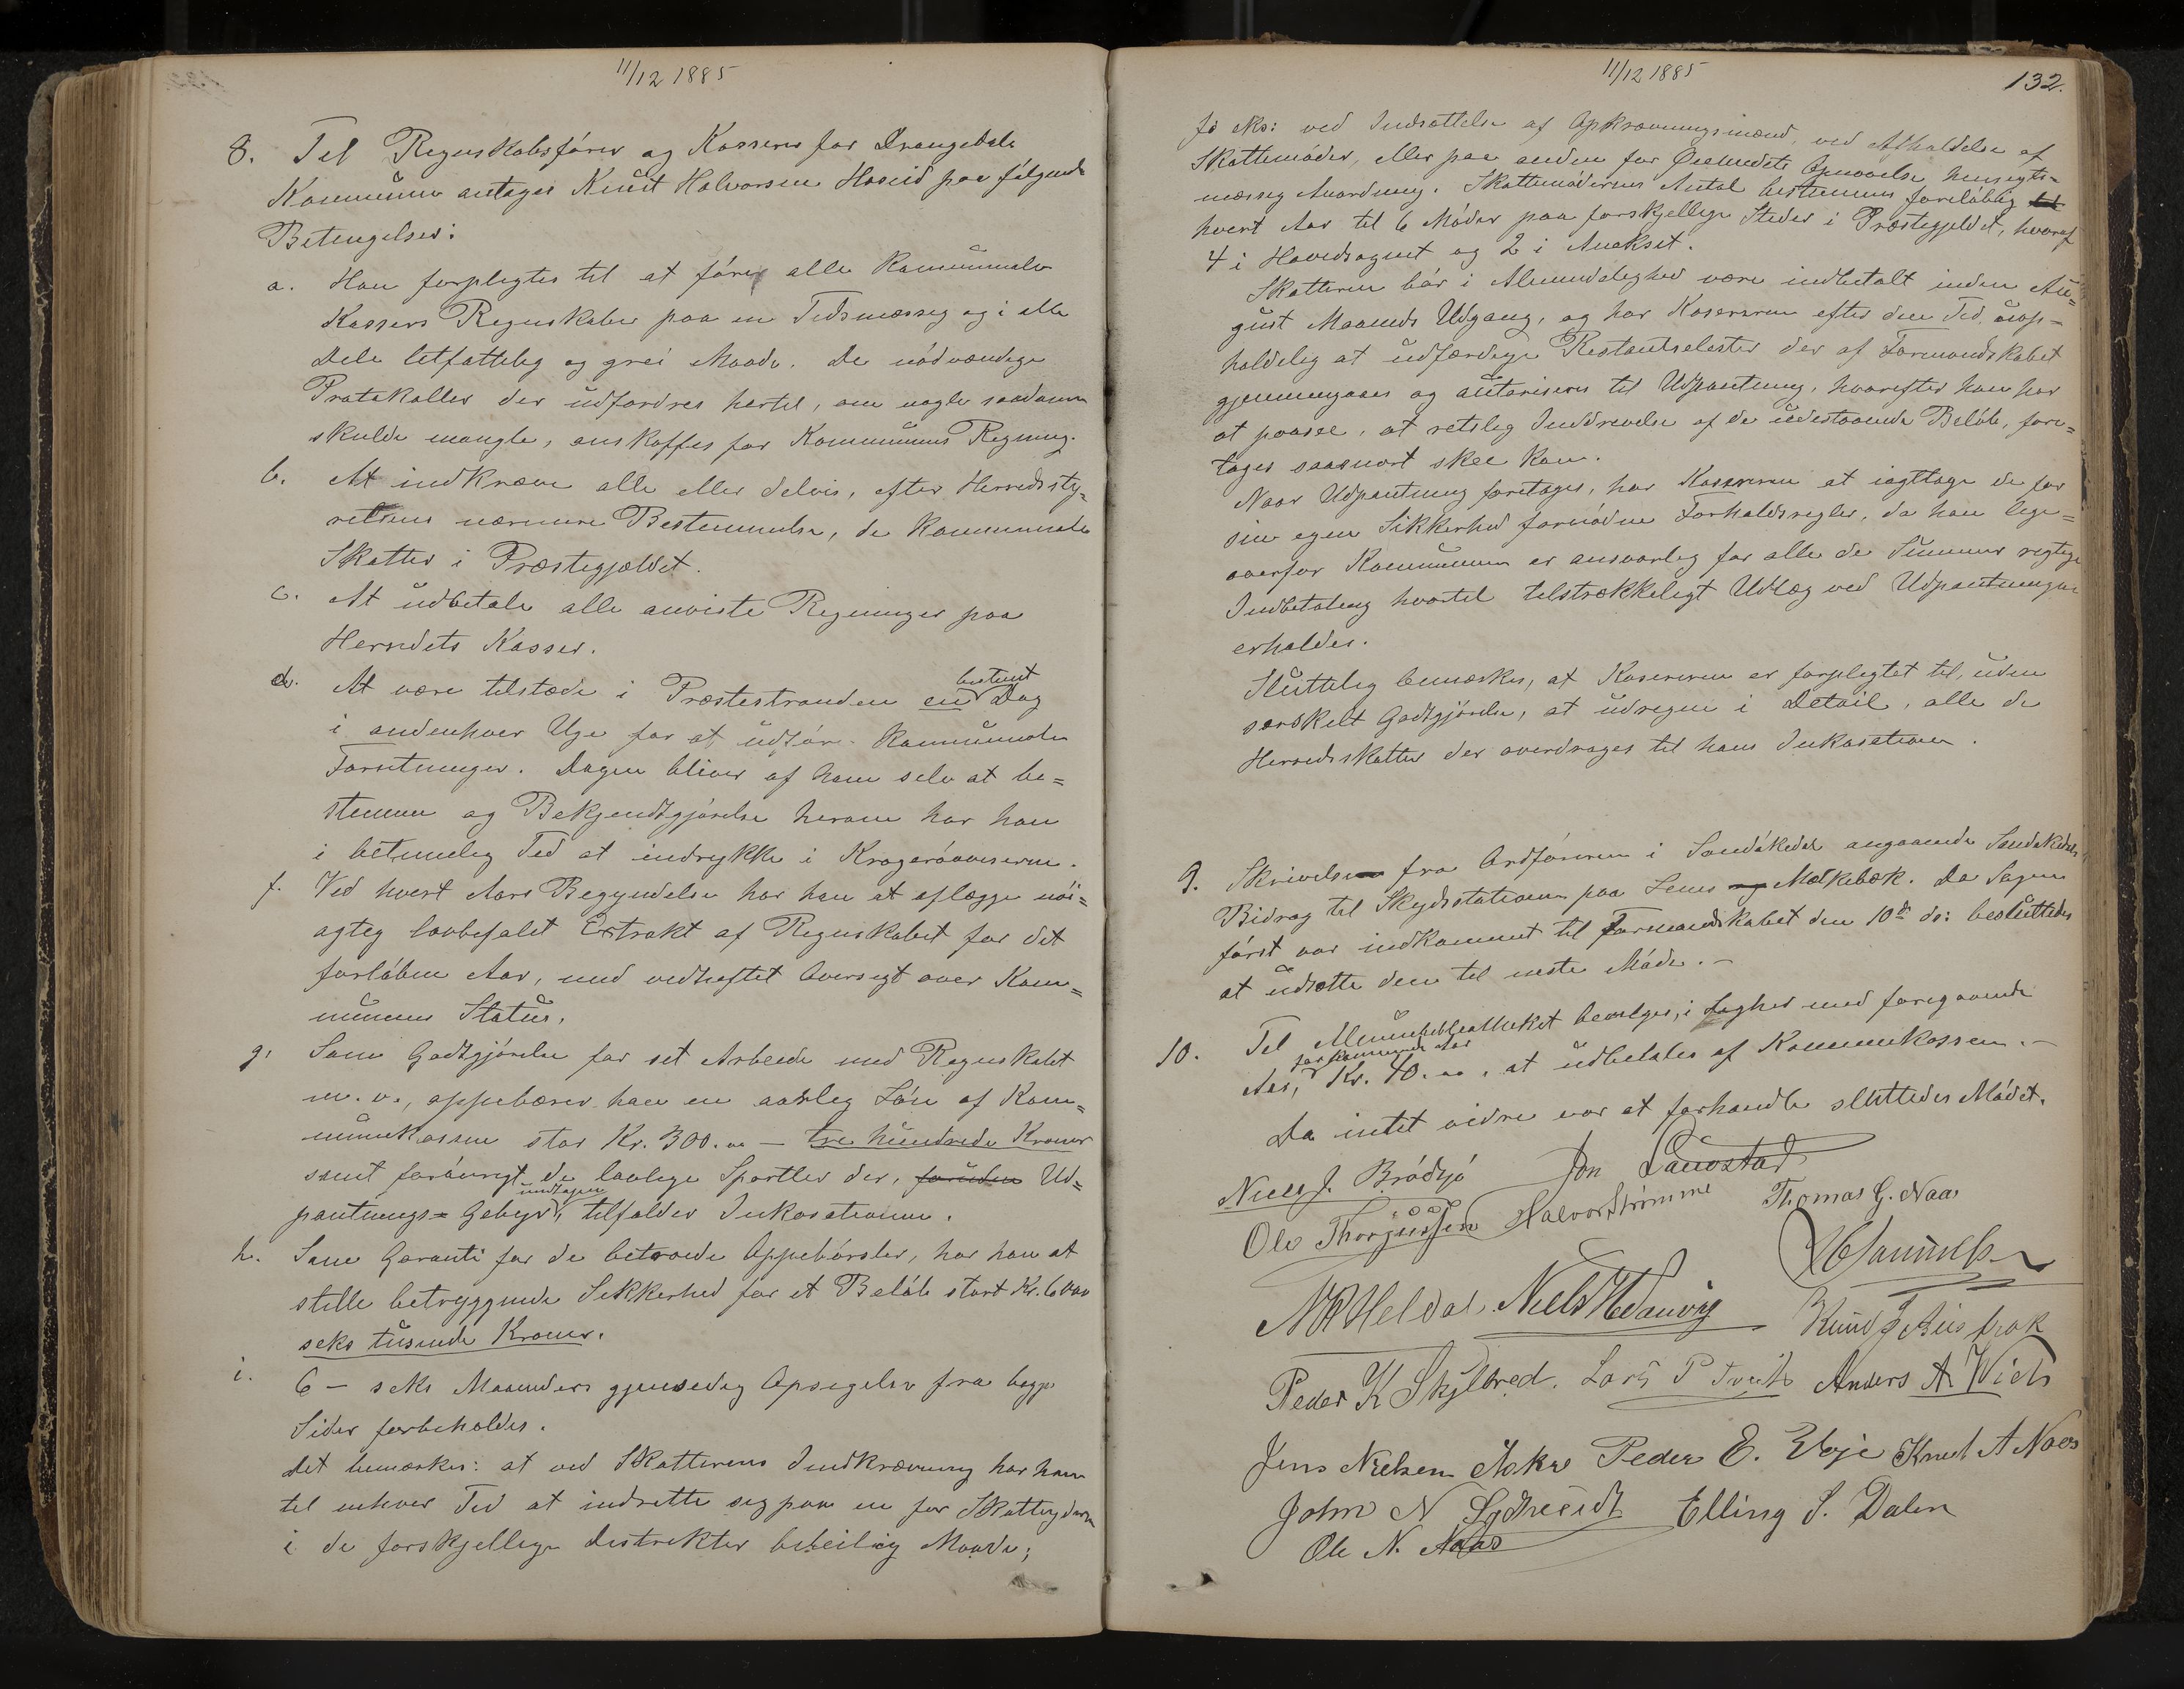 11/12 1885
8. Til Regnskabsfører og Kasserer for Drangedals
Kommune antages Knut Halvorsen Hoseid paa følgende
Betingelser:
a. Han forpligtes til at føre alle kommunale
Kassers Regnskaber paa en Tidsmæssig og i alle
Dele letfattelig og grei Maade. De nødvændige
Protokoller der udfordres hertil, om nogle saadanne
skulde mangle, anskaffes for Kommunens Regning.
b. At indkræve alle eller delvis, efter Herredssty=
relsens nærmere Bestemmelse, de kommunale
Skatter i Præstegjældet.
c. At udbetale alle anviste Regninger paa
Herredets Kasser.
d. At være tilstæde i Præstestranden en bestemt Dag
i andenhver Uge for at udføre kommunale
Forretninger. Dagen bliver af ham selv at be=
stemme og Bekjendtgjørelse herom har han
i betimelig Tid at indrykke i Kragerøaviserne.
f. Ved hvert Aars Begyndelse har han at aflægge nøi=
agtig lovbefalet Extrakt af Regnskabet for det
forløbne Aar, med vedheftet Oversigt over Kom=
munens Status.
g. Som Godtgjørelse for sit Arbeide med Regnskabet
m. v., oppebærer han en aarlig Løn af Kom=
munekassen stor Kr. 300.00 — tre hundrede Kroner
samt forøvrigt de lovlige Sportler der, foruden Ud=
pantnings= Gebyr undtagen, tilfalder Inkasationen.
h. Som Garanti for de betroede Oppebørsler, har han at
stille betryggende Sikkerhed for et Beløb stort Kr. 6000
seks tusinde Kroner.
i. 6 — seks Maaneders gjensedig Opsigelse fra begge
Sider forbeholdes.
Det bemærkes: at ved Skatternes Indkrævning har han
til enhver Tid at indrette sig paa en for Skatteyderne
i de forskjellige Distrikter beleilig Maade;
11/12 1885
132.
fo eks: ved Indsættelse af Opkrævningsmænd, ved Afholdelse af
Skattemøder, eller paa anden for Øiemedets Opnaaelse hensigts=
mæssig Anordning. Skattemødernes Antal bestemmes foreløbig til
hvert Aar til 6 Møder paa forskjellige Steder i Præstegjeldet, hvoraf
4 i Hovedsognet og 2 i Anekset.
Skatterne bør i Almindelighed være indbetalt inden Au=
gust Maaneds Udgang, og har Kasereren efter den Tid uop=
holdelig at udfærdige Restantselister der af Formandskabet
gjennemgaaes og autoriseres til Udpantning, hvorefter han har
at paasee, at retslig Inddrivelse af de udestaaende Beløb, fore=
tages saasnart skee kan.
Naar Udpantning foretages, har Kassereren at iagttage de for
sin egen Sikkerhed fornødne Forholdsregler, da han lige=
overfor Kommunen er ansvarlig for alle de Summers rigtige
Indbetaling hvortil tilstrækkeligt Udlæg ved Udpantningen
erholdes.
Sluttelig bemærkes, at Kasereren er forpligtet til, uden
særskilt Godtgjørelse, at udregne i Detail, alle de
Herredsskatter der overdrages til hans Inkasation.
9. Skrivelse fra Ordføreren i Sandøkedal angaaende Sandøkedals
Bidrag til Skydsstationen paa Lenes og Melkebæk. Da Sagen
først var indkommet til Formandskabet den 10de ds: besluttedes
at udsætte den til neste Møde.—
10. Til Almuebibliotheket bevilges, i Lighed med foregaaende
Aar, for kommende Aar Kr. 40.00, at udbetales af Kommunekassen.—
Da intet videre var at forhandle sluttedes Mødet.
Niels J. Brødsjø Jon Laurstad
Ole Thorjussen Halvor Strømme Thomas G. Naas
NR Heldal. Niels
Peder K Skjelbred. Lars P Tveit Anders A
Jens Nielsen Aakre Peder E. Voje Knut A Naas
John N Elling S. Dalen
Ole N. Naas